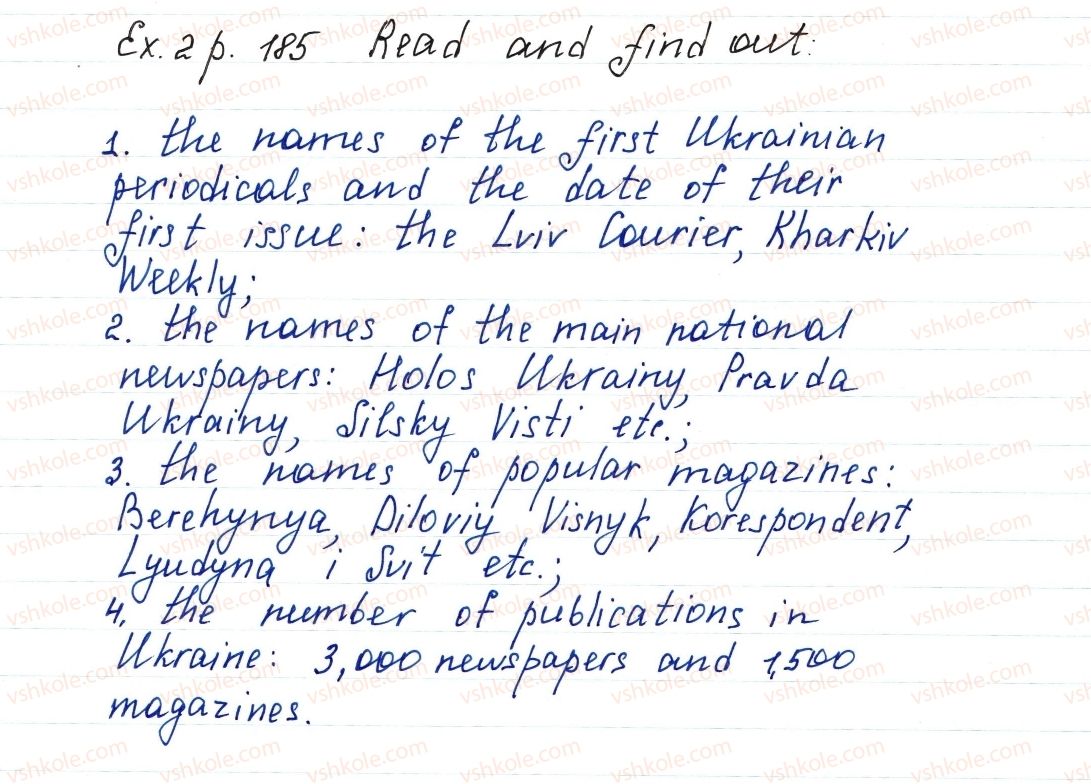 Ex. 2 p. 185 Read and find out:
1. the names of the first Ukrainian
periodicals and the date of their
first issue: the Lviv Courier, Kharkiv
Weekly;
2. the names of the main national
newspapers: Holos Ukrainy, Pravda
Ukrainy, Silsky Visti etc.;
3. the names of popular magazines:
Berehynya, Diloviy Visnyk, Korespondent,
Lyudyna i Svit etc.;
4. the number of publications in
Ukraine: 3,000 newspapers and 1,500
magazines.